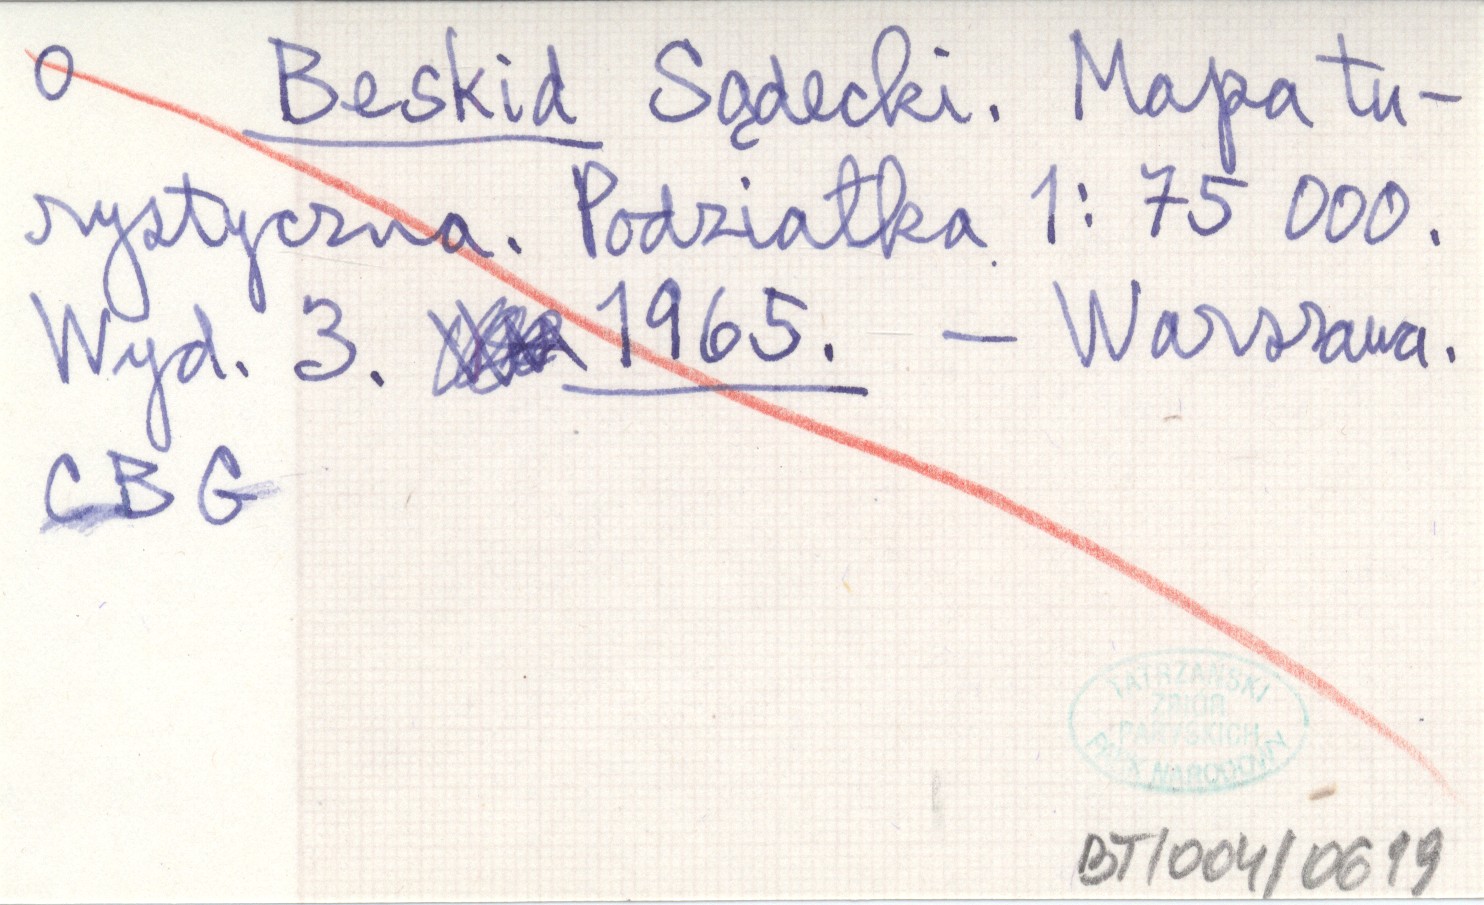 O Beskid Sądecki. Mapa tu-
rystyczna. Podziałka 1:75 000.
Wyd. 3. 1965. – Warszawa.
CBG
TATRZAŃSKI
ZBIÓR
PARYSKICH
PARK NARODOWY
BT/004/0619